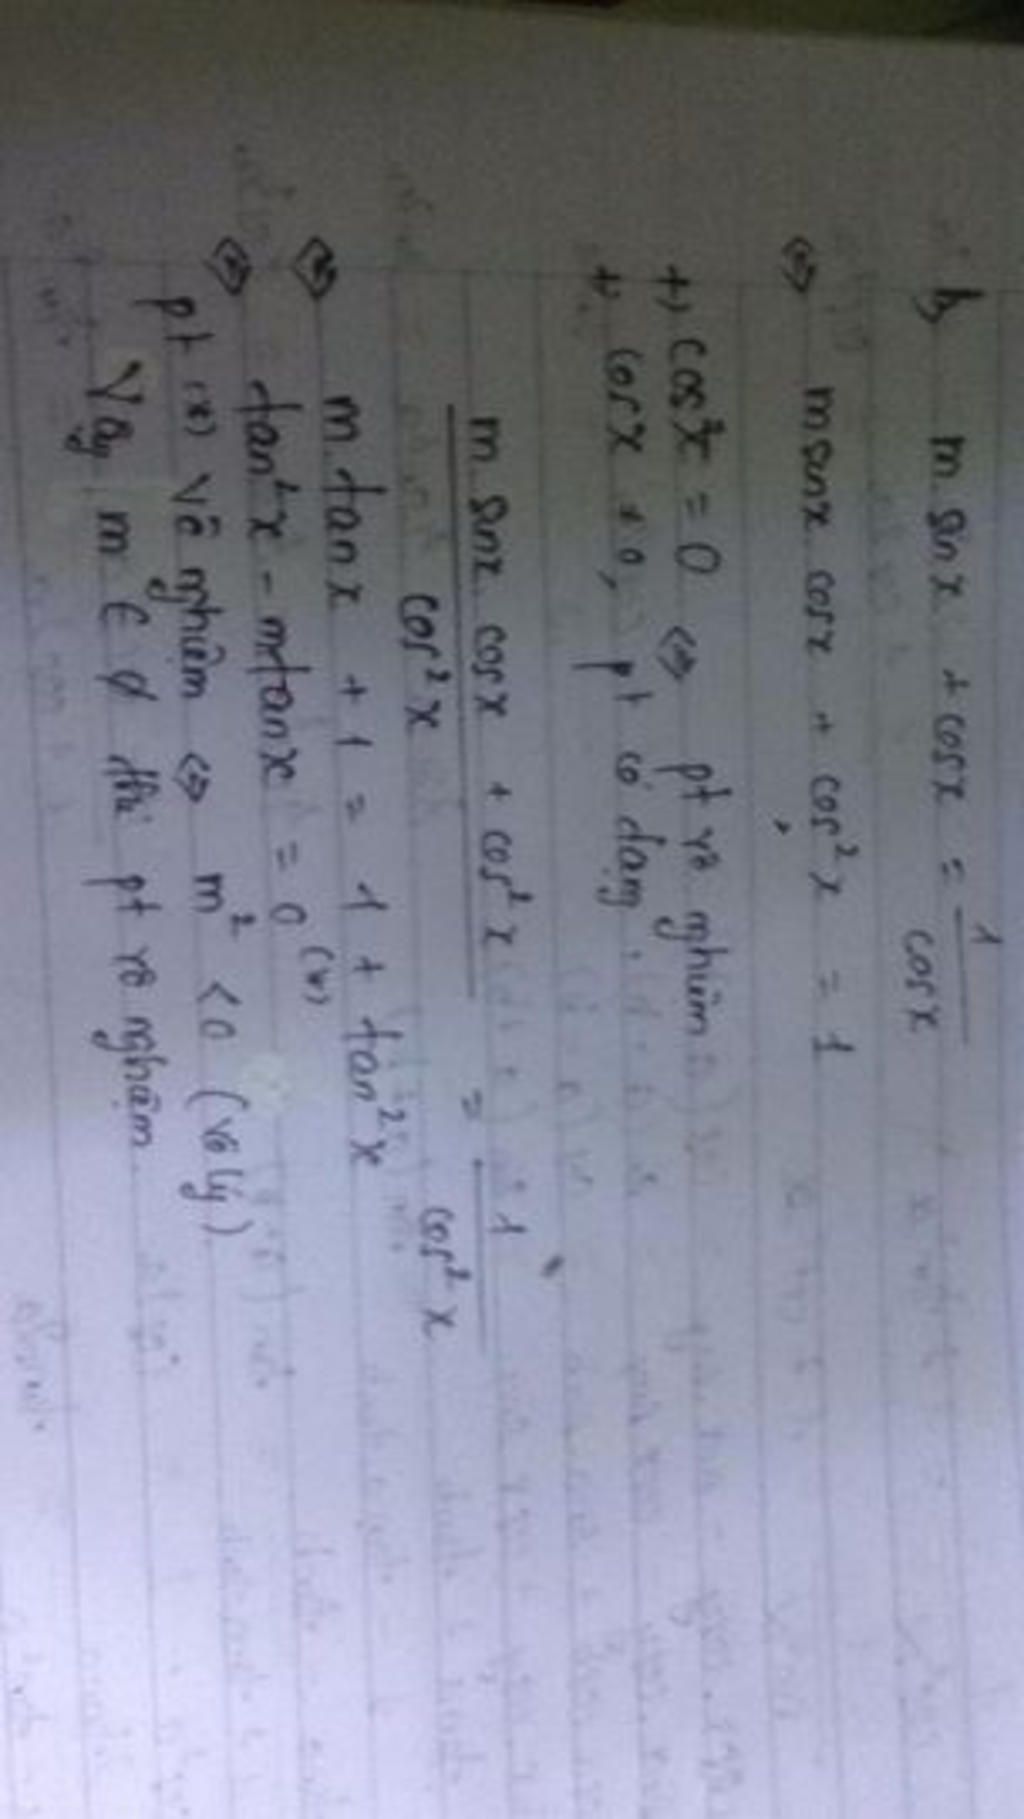 b, m sinx + cosx = 1/cosx
⇔ m sinx cosx + cos²x = 1
+, cosx = 0 ⇔ pt vô nghiệm
+, cosx ≠ 0, pt có dạng:
m sinx cosx + cos²x / cos²x = 1 / cos²x
⇔ m tanx + 1 = 1 + tan²x
⇔ tan²x - mtanx = 0 (*)
pt (*) vô nghiệm ⇔ m² < 0 (vô lý)
Vậy m ∈ ∅ thì pt vô nghiệm